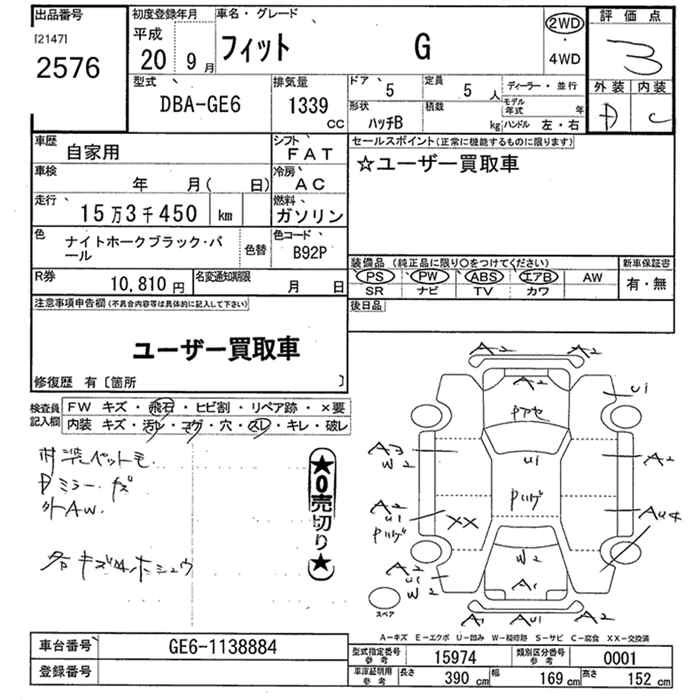 出品番号
[2147]
2576
初度登録年月
平成
20 9月
車名・グレード
フィット G
2WD
・
4WD
評価点
3
外装 内装
D C
型式
DBA-GE6
排気量
1339
CC
ドア 5
定員 5 人
ディーラー・並行
形状 ハッチB
積載 kg
モデル年式 年
ハンドル 左・右
車歴 自家用
シフト FAT
車検 年 月( 日)
冷房 AC
走行 15万3千450 km
燃料 ガソリン
色 ナイトホークブラック・パール
色替
色コード B92P
R券 10,810 円
名変通知期限 月 日
セールスポイント(正常に機能するものに限ります)
☆ユーザー買取車
装備品 (純正品に限り○をつけてください)
PS PW ABS エアB AW
SR ナビ TV カワ
新車保証書
有・無
後日品
注意事項申告欄(不具合内容等は具体的に記入して下さい)
ユーザー買取車
修復歴 有〔箇所 〕
検査員記入欄
FW キズ・飛石・ヒビ割・リペア跡・×要
内装 キズ・汚レ・コゲ・穴・スレ・キレ・破レ
Dミラーキズ
外AW.
★0売切り★
A2 A2
A2
U1
Pアセ
A3
W2
U1
A2
A2
U1
Pハゲ
XX
Pハゲ
AU4
A2
U1
W2
W2
A1
A1 AU1 A2
スペア
A－キズ E－エクボ U－凹み W－補修跡 S－サビ C－腐食 XX－交換済
車台番号 GE6-1138884
登録番号
型式指定番号 参考 15974
類別区分番号 参考 0001
車庫証明用 参考 長さ 390 cm 幅 169 cm 高さ 152 cm